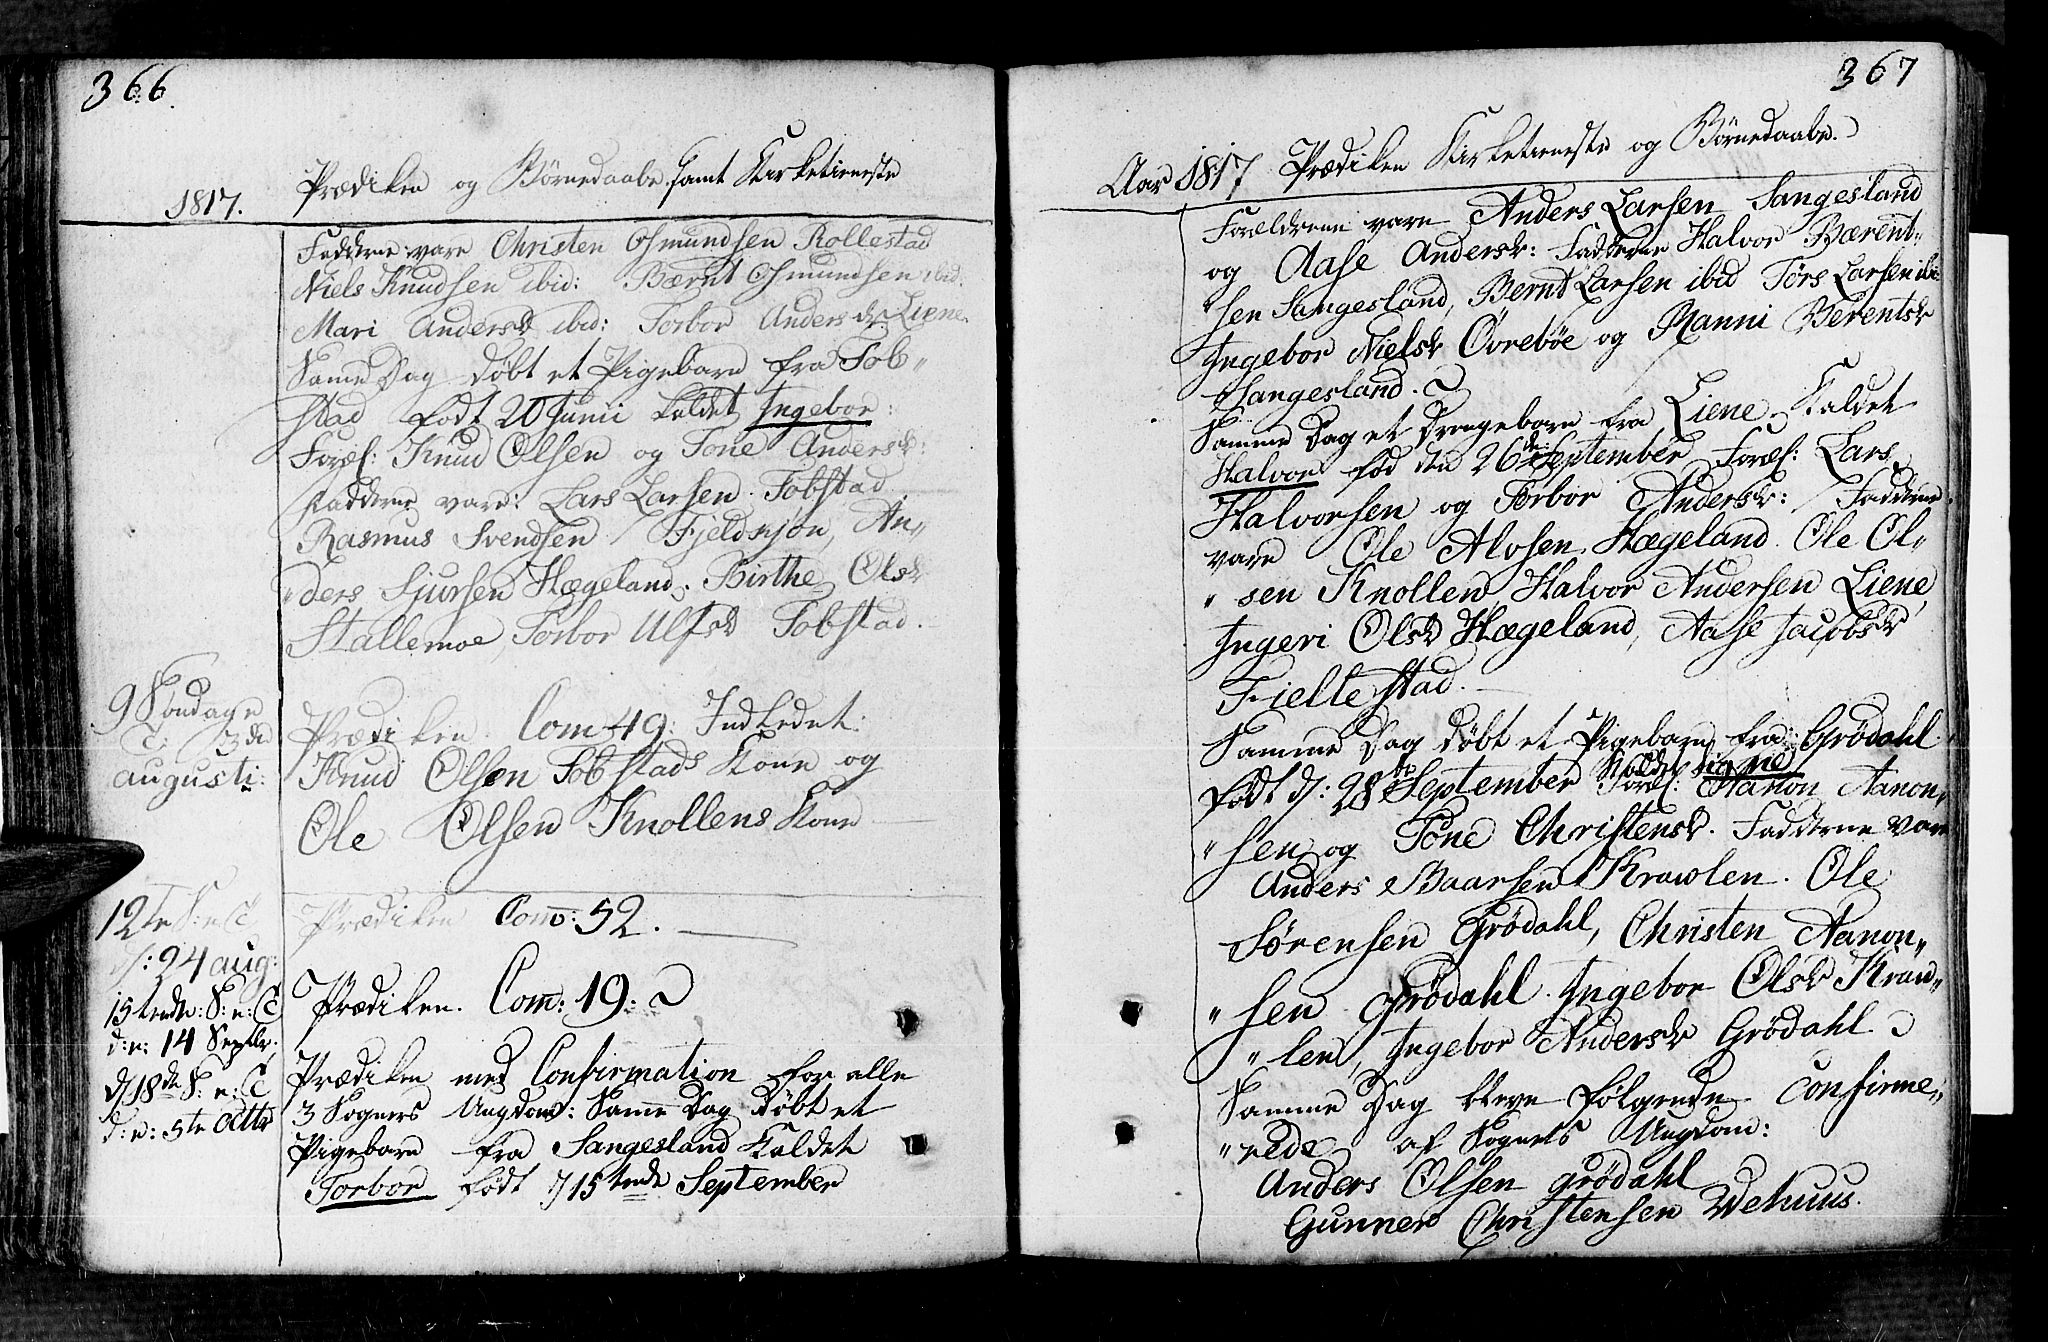 366.
1817. Prædiken og Börnedaabe samt Kirketieneste
Fadderne vare Christen Osmundsen Rollestad
Niels Knudsen ibid: Bærnt Osmundsen ibid.
Mari Andersd ibid: Torbor Andersdr Liene.
Same Dag döbt et Pigebarn fra Tob„
stad födt 20 Junii kaldet Ingebor:
Foræl: Knud Olsen og Tone Andersdr:
Fadderne vare: Lars Larsen Tobstad
Rasmus Svendsen Fjeldsjön, An„
„ders Sjursen Hægeland, Birthe Olsdr
Stallemoe, Torbor Ulfsd Tobstad.
9 Söndag e
T: 3die
augusti:
Prædiken. Com 49: Indledet:
Knud Olsen Tobstads Kone og
Ole Olsen Knollens Kone
12te S: e T
d: 24 aug:
Prædiken Com: 52.
15tende: S: e: T
d:n: 14 Septbr.
Prædiken. Com: 19:
d 18de S: e: T
d:n: 5te Octbr
Prædiken med Confirmation for alle
3 Sogners Ungdom: Same Dag döbt et
Pigebarn fra Sangesland Kaldet
Torbor födt d 15tende September
367
Aar 1817 Prædiken Kirketieneste og Börnedaabe.
Forældrene vare Anders Larsen Sangesland
og Aase Andersdr: Fadderne Halvor Bærent„
„sen Sangesland, Bernt Larsen ibid Törs Larsen ibi
Ingebor Nielsdr Övreböe og Ranni Berentsdr
Sangesland.
Samme Dag et Drengebarn fra Liene Kaldet
Halvor föd den 26de September Foræl: Lars
Halvorsen og Torbor Andersdr: Fadderne
vare Ole Alvsen Hægeland Ole Ol„
„sen Knollen Halvor Andersen Liene,
Ingeri Olsdr Hægeland, Aase Jacobsdr
Fieltestad.
Samme Dag döbt et Pigebarn fra Grödahl
kaldet Signe
födt d: 28de September Foræl: Aanon Aanon„
„sen og Tone Christensdr. Fadderne vare
Anders Baarsen Krawlen. Ole
Sörensen Grödahl, Christen Aanon„
„sen Grödahl. Ingebor Olsdr Kraw„
„len, Ingebor Andersdr Grödahl
Samme Dag bleve fölgende Confirme„
„rede af Sognets Ungdom:
Anders Olsen grödahl
Gunner Christensen Wehuus.